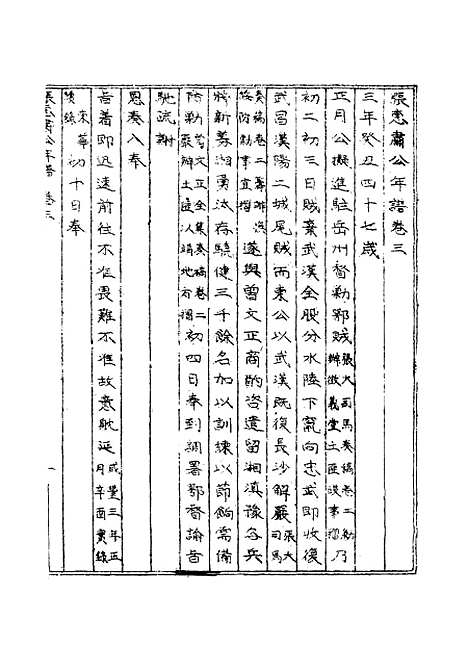 張惠肅公年譜卷三
三年癸丑四十七歲
正月公擬進駐岳州督勦鄂賊張大司馬奏稿卷二勦辦徵義堂土匪沒事摺乃
初二初三日賊棄武漢全股分水陸下竄向忠武即收復
武昌漢陽二城尾賊而東公以武漢既復長沙解嚴張大司馬
奏稿卷二籌 防勦事宜摺遂與曾文正商酌咨遣留湘滇豫各兵
將新募湘勇汰存驍健三千餘名加以訓練以節餉需備
防勦曾文正全集奏稿卷二嚴辦土匪以靖地方摺初四日奉到調署鄂督諭旨
馳疏謝
恩奏入奉
旨着即迅速前往不准畏難不准故意耽延咸豐三年正月辛酉實錄
東華續錄初十日奉
張惠肅公年譜 卷三
一